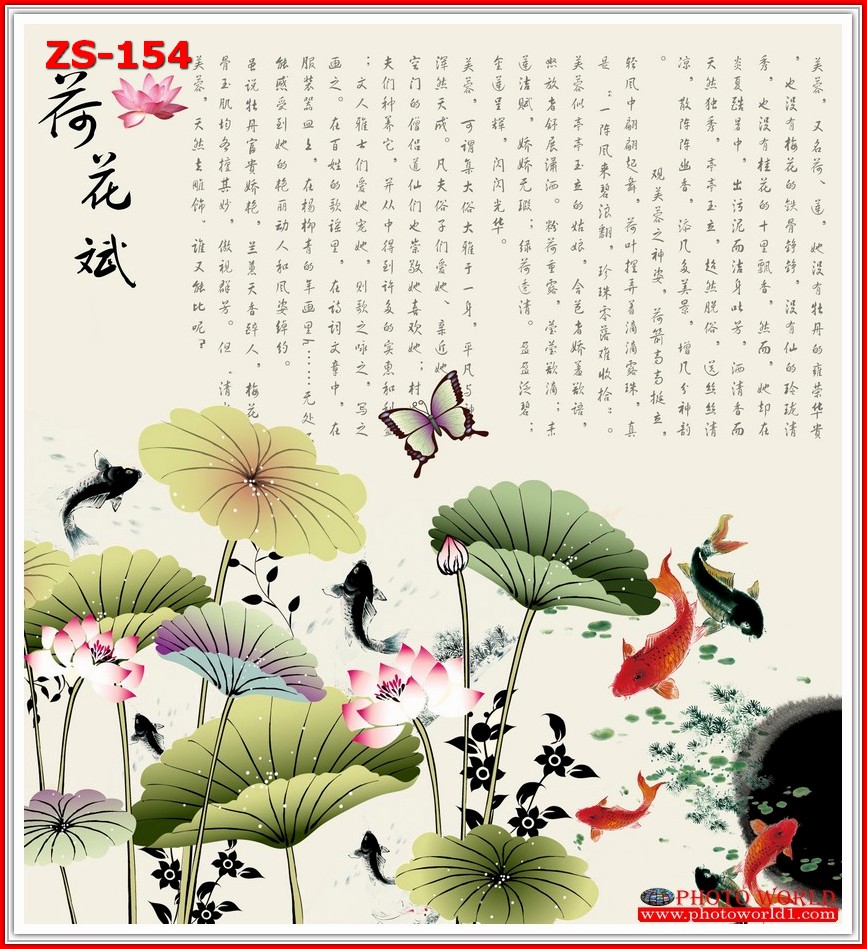 ZS-154
荷花斌
芙蓉，又名荷、莲，她没有牡丹的雍荣华贵
，也没有梅花的铁骨铮铮，没有仙的玲珑清
秀，也没有桂花的十里飘香，然而，她却在
炎夏酷暑中，出污泥而洁身此芳，洒清香而
天然独秀，亭亭玉立，超然脱俗，送丝丝清
凉，散阵阵幽香，添几多美景，增几分神韵
。 观芙蓉之神姿，荷箭高高挺立，
轻风中翩翩起舞，荷叶摆弄着滴滴露珠，真
是：一阵风来碧浪翻，珍珠零落难收拾。。
芙蓉似亭亭玉立的姑娘，含苞者娇羞欲语，
怒放者舒展潇洒。粉荷垂露，莹莹欲滴；未
莲洁赋，娇娇无瑕；绿荷透清。盈盈泛碧；
金莲呈辉，闪闪光华。
芙蓉，可谓集大俗大雅于一身，平凡与
浑然天成。凡夫俗子们爱她、亲近她
空门的僧侣道仙们也崇敬她喜欢她；村
夫们种养它，并从中得到许多的实惠和利益
；文人雅士们爱她宠她，则歌之咏之，写之
画之。在百姓的歌谣里，在诗词文章中，在
服装器皿上，在杨柳青的年画里h……无处
能感受到她的艳丽动人和风姿绰约。
虽说牡丹富贵娇艳，兰蕙天香醉人，梅花
骨玉肌均各擅其妙，傲视群芳。但，清
芙蓉，天然去雕饰，谁又能比呢？
PHOTO WORLD
www.photoworld1.com